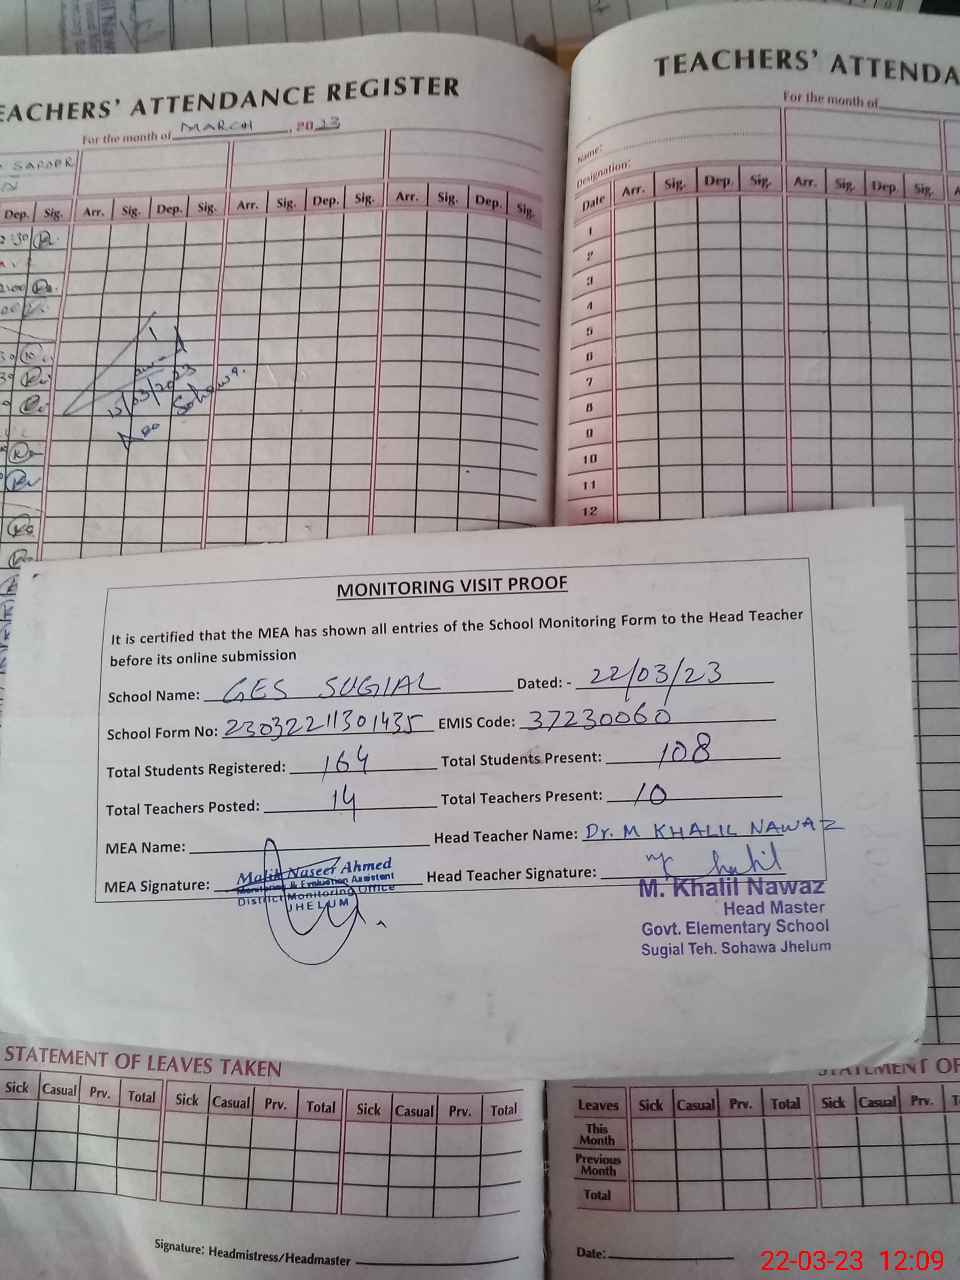 TEACHERS' ATTENDANCE REGISTER
For the month of MARCH, 2023
SAFDAR
Dep. Sig. Arr. Sig. Dep. Sig. Arr. Sig. Dep. Sig. Arr. Sig. Dep. Sig.
15/03/2023
Sohawa.
TEACHERS' ATTENDA
For the month of
Name:
Designation:
Date Arr. Sig. Dep. Sig. Arr. Sig. Dep. Sig. A
1
2
3
4
5
6
7
8
9
10
11
12
MONITORING VISIT PROOF
It is certified that the MEA has shown all entries of the School Monitoring Form to the Head Teacher
before its online submission
School Name: GES SUGIAL Dated: - 22/03/23
School Form No: 23032211301435 EMIS Code: 37230060
Total Students Registered: 164 Total Students Present: 108
Total Teachers Posted: 14 Total Teachers Present: 10
MEA Name: Head Teacher Name: Dr. M KHALIL NAWAZ
MEA Signature: Head Teacher Signature:
Malik Naseer Ahmed
Monitoring & Evaluation Assistant
District Monitoring Office
JHELUM
M. Khalil Nawaz
Head Master
Govt. Elementary School
Sugial Teh. Sohawa Jhelum
STATEMENT OF LEAVES TAKEN
Sick Casual Prv. Total Sick Casual Prv. Total Sick Casual Prv. Total
Signature: Headmistress/Headmaster
STATEMENT OF
Leaves Sick Casual Prv. Total Sick Casual Prv. T
This Month
Previous Month
Total
Date:
22-03-23 12:09